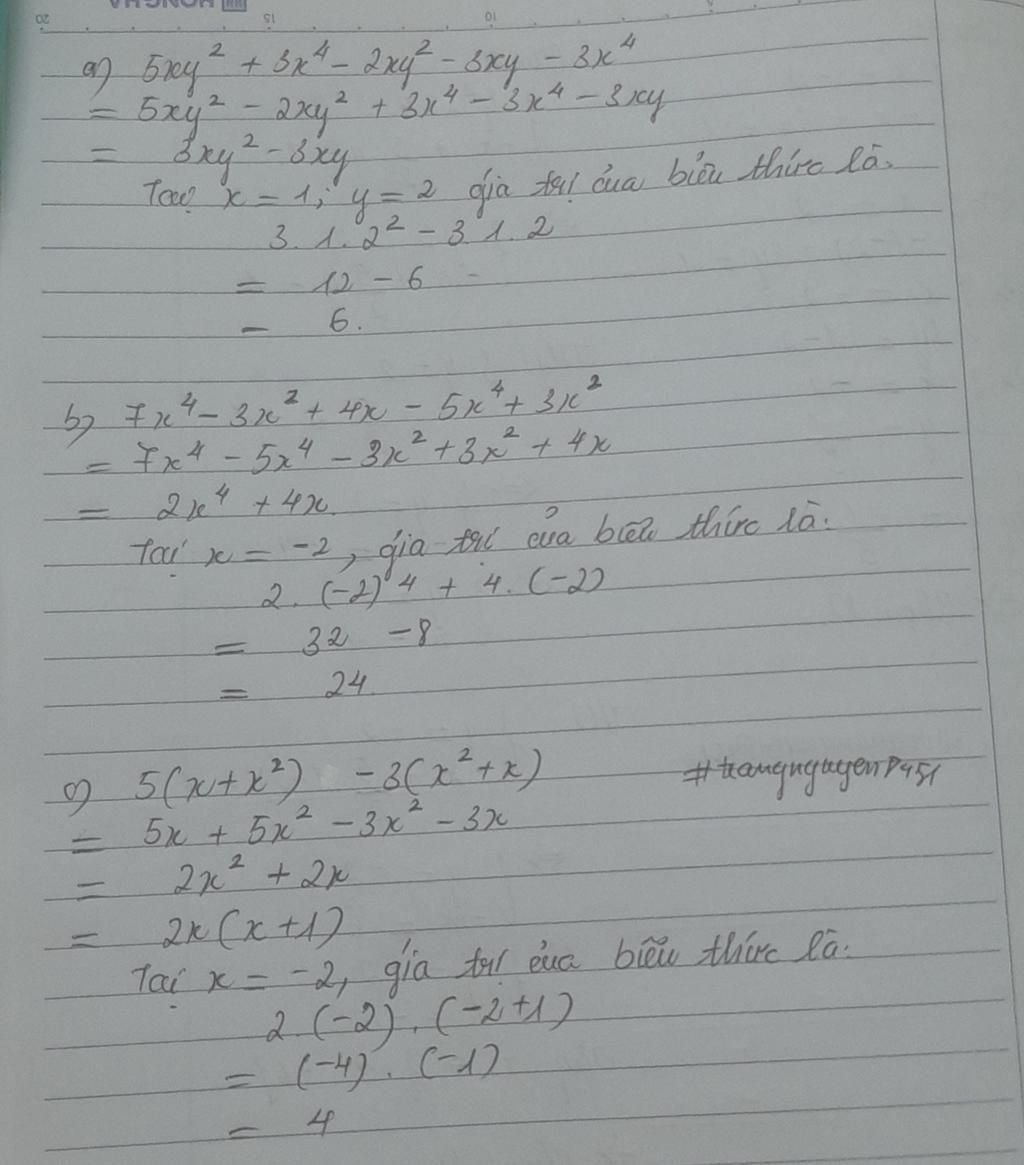 20 15 10
HONGHA
a) 5xy² + 3x⁴ - 2xy² - 3xy - 3x⁴
= 5xy² - 2xy² + 3x⁴ - 3x⁴ - 3xy
= 3xy² - 3xy
Tại x = 1; y = 2 giá trị của biểu thức là.
3. 1. 2² - 3 1. 2
= 12 - 6
= 6.
b) 7x⁴ - 3x² + 4x - 5x⁴ + 3x²
= 7x⁴ - 5x⁴ - 3x² + 3x² + 4x
= 2x⁴ + 4x.
Tại x = -2, giá trị của biểu thức là:
2. (-2)⁴ + 4. (-2)
= 32 - 8
= 24
c) 5(x+x²) - 3(x²+x) #trangnguyen8451
= 5x + 5x² - 3x² - 3x
= 2x² + 2x
= 2x(x+1)
Tại x = -2, giá trị của biểu thức là:
2. (-2). (-2+1)
= (-4). (-1)
= 4